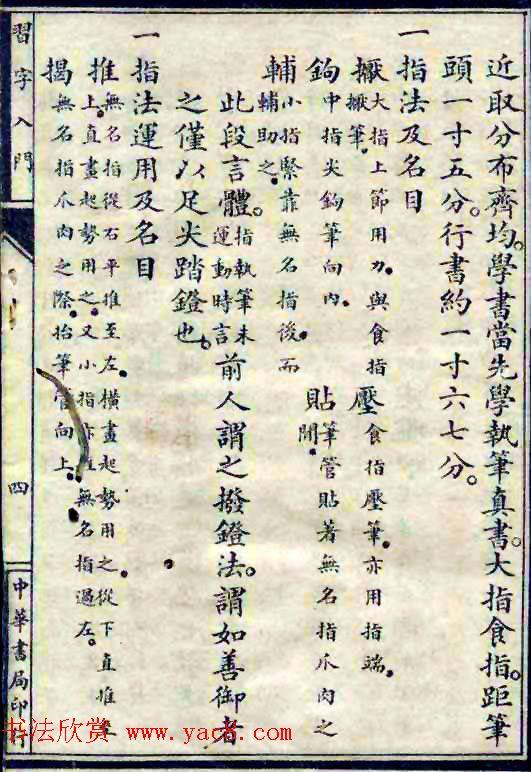 近取分布齊均。學書當先學執筆。真書。大指食指。距筆
頭一寸五分。行書約一寸六七分。
一指法及名目
擫大指上節用力。與食指擫筆。壓食指壓筆。亦用指端。
鉤中指尖鉤筆向內。貼筆管貼著無名指爪肉之間。
輔小指緊靠無名指後而輔助之。
此段言體。指執筆未運動時言前人謂之撥鐙法。謂如善御者
之僅以足尖踏鐙也。
一指法運用及名目
推無名指從右平推至左。橫畫起勢用之。從下直推至上。直畫起勢用之。又小指亦無名指過左。
揭無名指爪肉之際。抬筆管向上。
習字入門
四
中華書局印行
书法欣赏 www.yac8.com